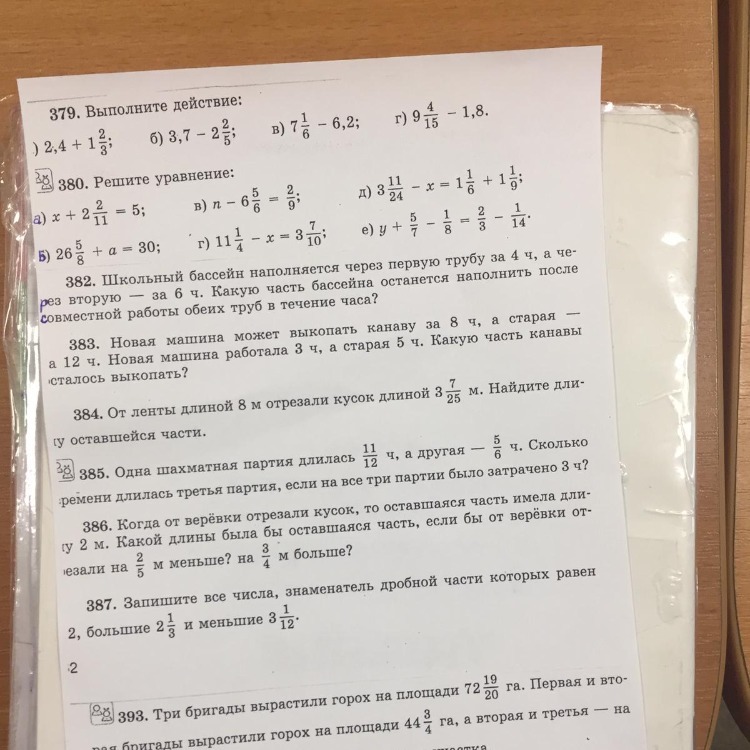 379. Выполните действие:
) 2,4 + 1 2/3; б) 3,7 − 2 2/5; в) 7 1/6 − 6,2; г) 9 4/15 − 1,8.
380. Решите уравнение:
а) x + 2 2/11 = 5; в) n − 6 5/6 = 2/9; д) 3 11/24 − x = 1 1/6 + 1 1/9;
б) 26 5/8 + a = 30; г) 11 1/4 − x = 3 7/10; е) y + 5/7 − 1/8 = 2/3 − 1/14.
382. Школьный бассейн наполняется через первую трубу за 4 ч, а че-
рез вторую — за 6 ч. Какую часть бассейна останется наполнить после
совместной работы обеих труб в течение часа?
383. Новая машина может выкопать канаву за 8 ч, а старая —
а 12 ч. Новая машина работала 3 ч, а старая 5 ч. Какую часть канавы
сталось выкопать?
384. От ленты длиной 8 м отрезали кусок длиной 3 7/25 м. Найдите дли-
у оставшейся части.
385. Одна шахматная партия длилась 11/12 ч, а другая — 5/6 ч. Сколько
ремени длилась третья партия, если на все три партии было затрачено 3 ч?
386. Когда от верёвки отрезали кусок, то оставшаяся часть имела дли-
у 2 м. Какой длины была бы оставшаяся часть, если бы от верёвки от-
езали на 2/5 м меньше? на 3/4 м больше?
387. Запишите все числа, знаменатель дробной части которых равен
2, большие 2 1/3 и меньшие 3 1/12.
2
393. Три бригады вырастили горох на площади 72 19/20 га. Первая и вто-
рая бригады вырастили горох на площади 44 3/4 га, а вторая и третья — на